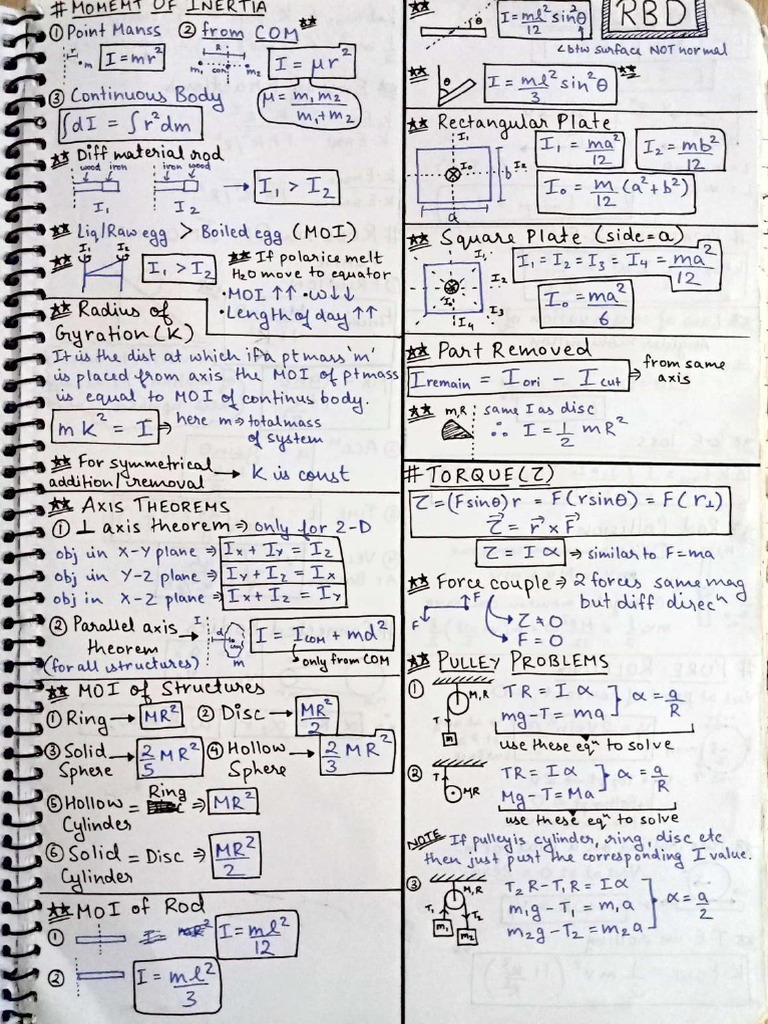 # MOMENT OF INERTIA
① Point Manss ② from COM **
m I = mr²
R m₁ com m₂ I = μr²
μ = m₁m₂/m₁+m₂
③ Continuous Body
∫dI = ∫r²dm
** Diff material rod
wood iron iron wood
I₁ I₂ → I₁ > I₂
** Liq/Raw egg > Boiled egg (MOI)
** I₁ I₂ I₁ > I₂
** If polar ice melt
H₂O move to equator
• MOI ↑↑ • ω↓↓
• Length of day ↑↑
** Radius of
Gyration (K)
It is the dist at which if a pt mass 'm'
is placed from axis the MOI of pt mass
is equal to MOI of continus body.
mK² = I ⇒ here m → total mass
of system
** For symmetrical
addition/removal → K is const
** AXIS THEOREMS
① ⊥ axis theorem ⇒ only for 2-D
obj in X-Y plane ⇒ Ix + Iy = Iz
obj in Y-Z plane ⇒ Iy + Iz = Ix
obj in X-Z plane ⇒ Ix + Iz = Iy
② Parallel axis
theorem →
(for all structures)
I d m I = Icom + md²
only from COM
** MOI of Structures
① Ring → MR² ② Disc → MR²/2
③ Solid
Sphere → 2/5 MR² ④ Hollow
Sphere → 2/3 MR²
⑤ Hollow
Cylinder = Ring ⇒ MR²
⑥ Solid
Cylinder = Disc ⇒ MR²/2
** MOI of Rod
① I = ml²/12
② I = ml²/3
** θ I = ml²sin²θ/12
<btw surface NOT normal
RBD
** θ I = ml²/3 sin²θ **
** Rectangular Plate
I₁ I₀ I₂ b a
I₁ = ma²/12 I₂ = mb²/12
I₀ = m/12 (a²+b²)
** Square Plate (side=a)
I₁ I₂ I₀ I₃ I₄
I₁ = I₂ = I₃ = I₄ = ma²/12
I₀ = ma²/6
** Part Removed
Iremain = Iori − Icut ⇒ from same
axis
** M,R same I as disc
∴ I = 1/2 mR²
# TORQUE(τ)
τ = (Fsinθ)r = F(rsinθ) = F(r⊥)
τ = r × F
τ = Iα ⇒ similar to F=ma
** Force couple ⇒ 2 forces same mag
but diff direcⁿ
F F
τ ≠ 0
F = 0
** PULLEY PROBLEMS
① M,R T m
TR = Iα α = a/R
mg−T = ma
use these eqⁿ to solve
② T MR
TR = Iα
Mg−T = Ma } α = a/R
use these eqⁿ to solve
NOTE If pulley is cylinder, ring, disc etc
then just purt the corresponding I value.
③ M,R T₁ T₂ m₁ m₂
T₂R − T₁R = Iα
m₁g − T₁ = m₁a
m₂g − T₂ = m₂a
α = a/2